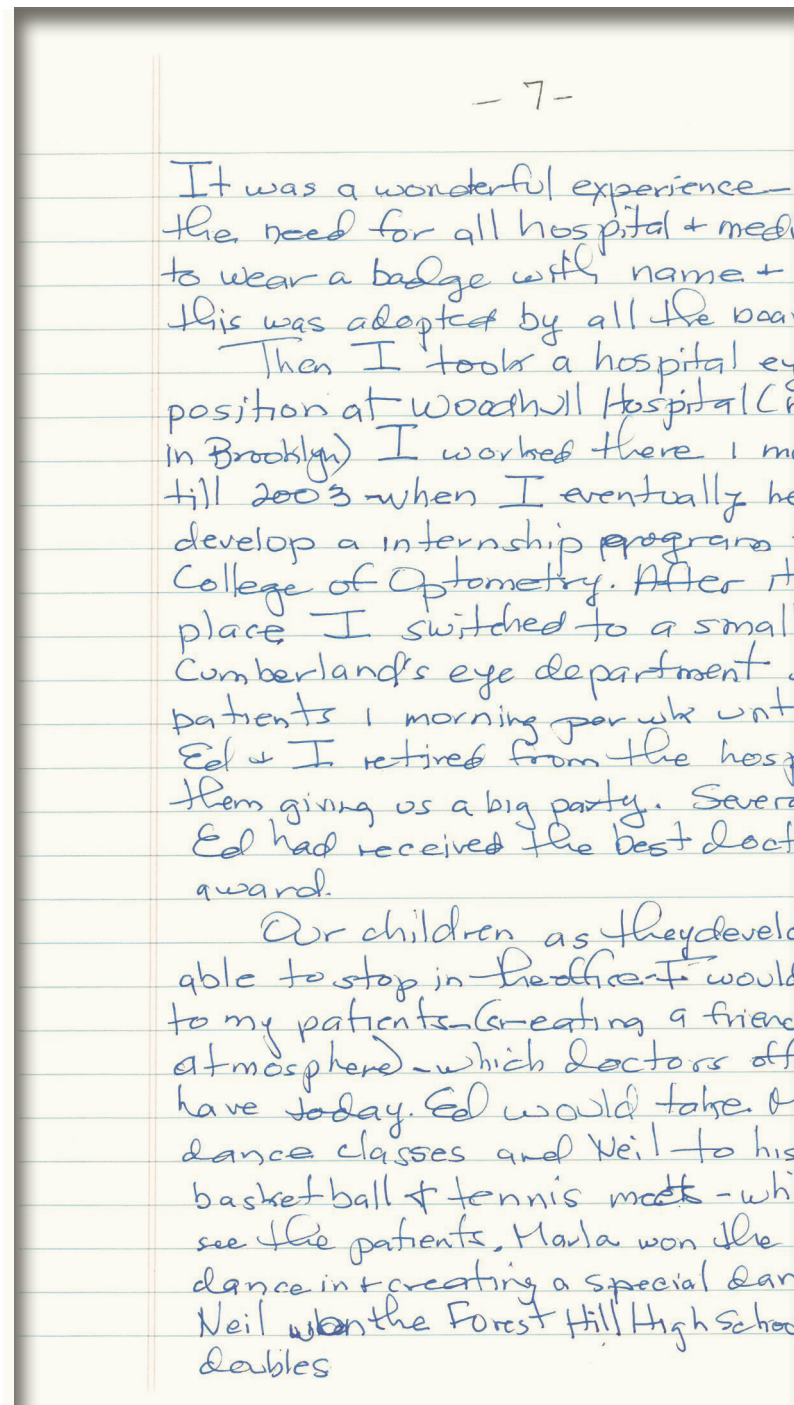 - 7-
It was a wonderful experience-
the need for all hospital +
to wear a badge with name +
this was adopted by all the
Then I took a hospital
position at Woodhull Hospital
in Brooklyn) I worked there 1
till 2003-when I eventually
develop a internship program
College of Optometry. After
place I switched to a small
Cumberland's eye department
patients 1 morning per wk
Ed + I retired from the
them giving us a big party.
Ed had received the best
award.
Our children as they
able to stop in the office-I would
to my patients-(creating a
atmosphere)-which doctors
have today. Ed would take
dance classes and Neil to his
basketball + tennis meets -
see the patients. Marla won the
dance in + creating a special
Neil won the Forest Hill High
doubles